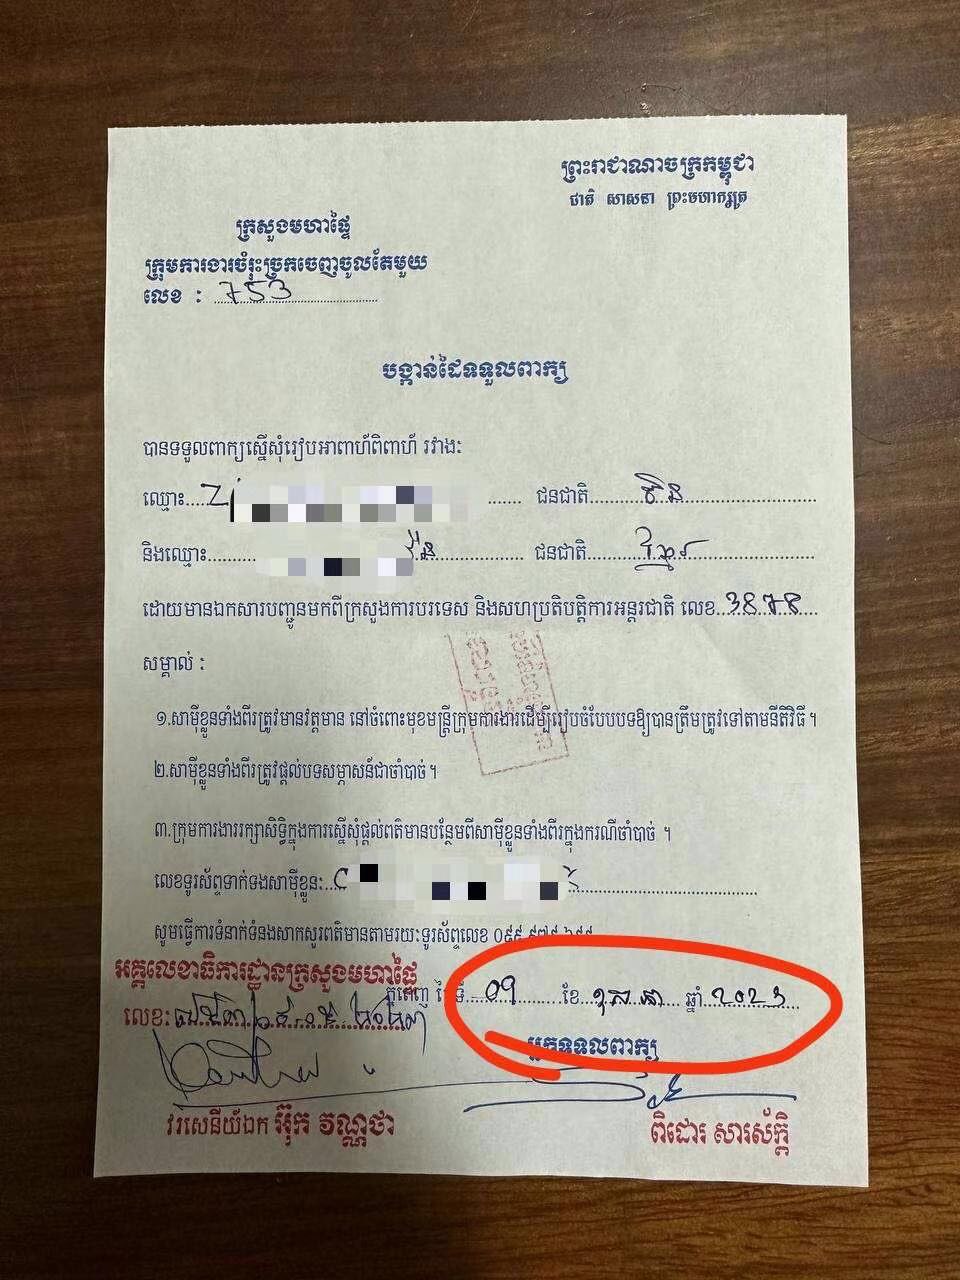 ព្រះរាជាណាចក្រកម្ពុជា
ជាតិ សាសនា ព្រះមហាក្សត្រ
ក្រសួងមហាផ្ទៃ
ក្រុមការងារចំរុះច្រកចេញចូលតែមួយ
លេខ : 753
បង្កាន់ដៃទទួលពាក្យ
បានទទួលពាក្យស្នើសុំរៀបអាពាហ៍ពិពាហ៍ រវាងៈ
ឈ្មោះ..... ...... ជនជាតិ......ចិន
និងឈ្មោះ......... ជនជាតិ......ខ្មែរ
ដោយមានឯកសារបញ្ជូនមកពីក្រសួងការបរទេស និងសហប្រតិបត្តិការអន្តរជាតិ លេខ..3878
សម្គាល់ :
១.សាម៉ីខ្លួនទាំងពីរត្រូវមានវត្តមាន នៅចំពោះមុខមន្ត្រីក្រុមការងារដើម្បីរៀបចំបែបបទឱ្យបានត្រឹមត្រូវទៅតាមនីតិវិធី ។
២.សាម៉ីខ្លួនទាំងពីរត្រូវផ្តល់បទសម្ភាសន៍ជាចាំបាច់ ។
៣.ក្រុមការងាររក្សាសិទ្ធិក្នុងការស្នើសុំផ្តល់ពត៌មានបន្ថែមពីសាម៉ីខ្លួនទាំងពីរក្នុងករណីចាំបាច់ ។
លេខទូរស័ព្ទទាក់ទងសាម៉ីខ្លួនៈ
សូមធ្វើការទំនាក់ទំនងសាកសួរពត៌មានតាមរយៈទូរស័ព្ទលេខ
អគ្គលេខាធិការដ្ឋានក្រសួងមហាផ្ទៃ
ភ្នំពេញ ថ្ងៃទី 09 ខែ តុលា ឆ្នាំ 2023
លេខៈ
អ្នកទទួលពាក្យ
វរសេនីយ៍ឯក អ៊ុក វណ្ណថា
ពិដោរ សារស័ក្តិ